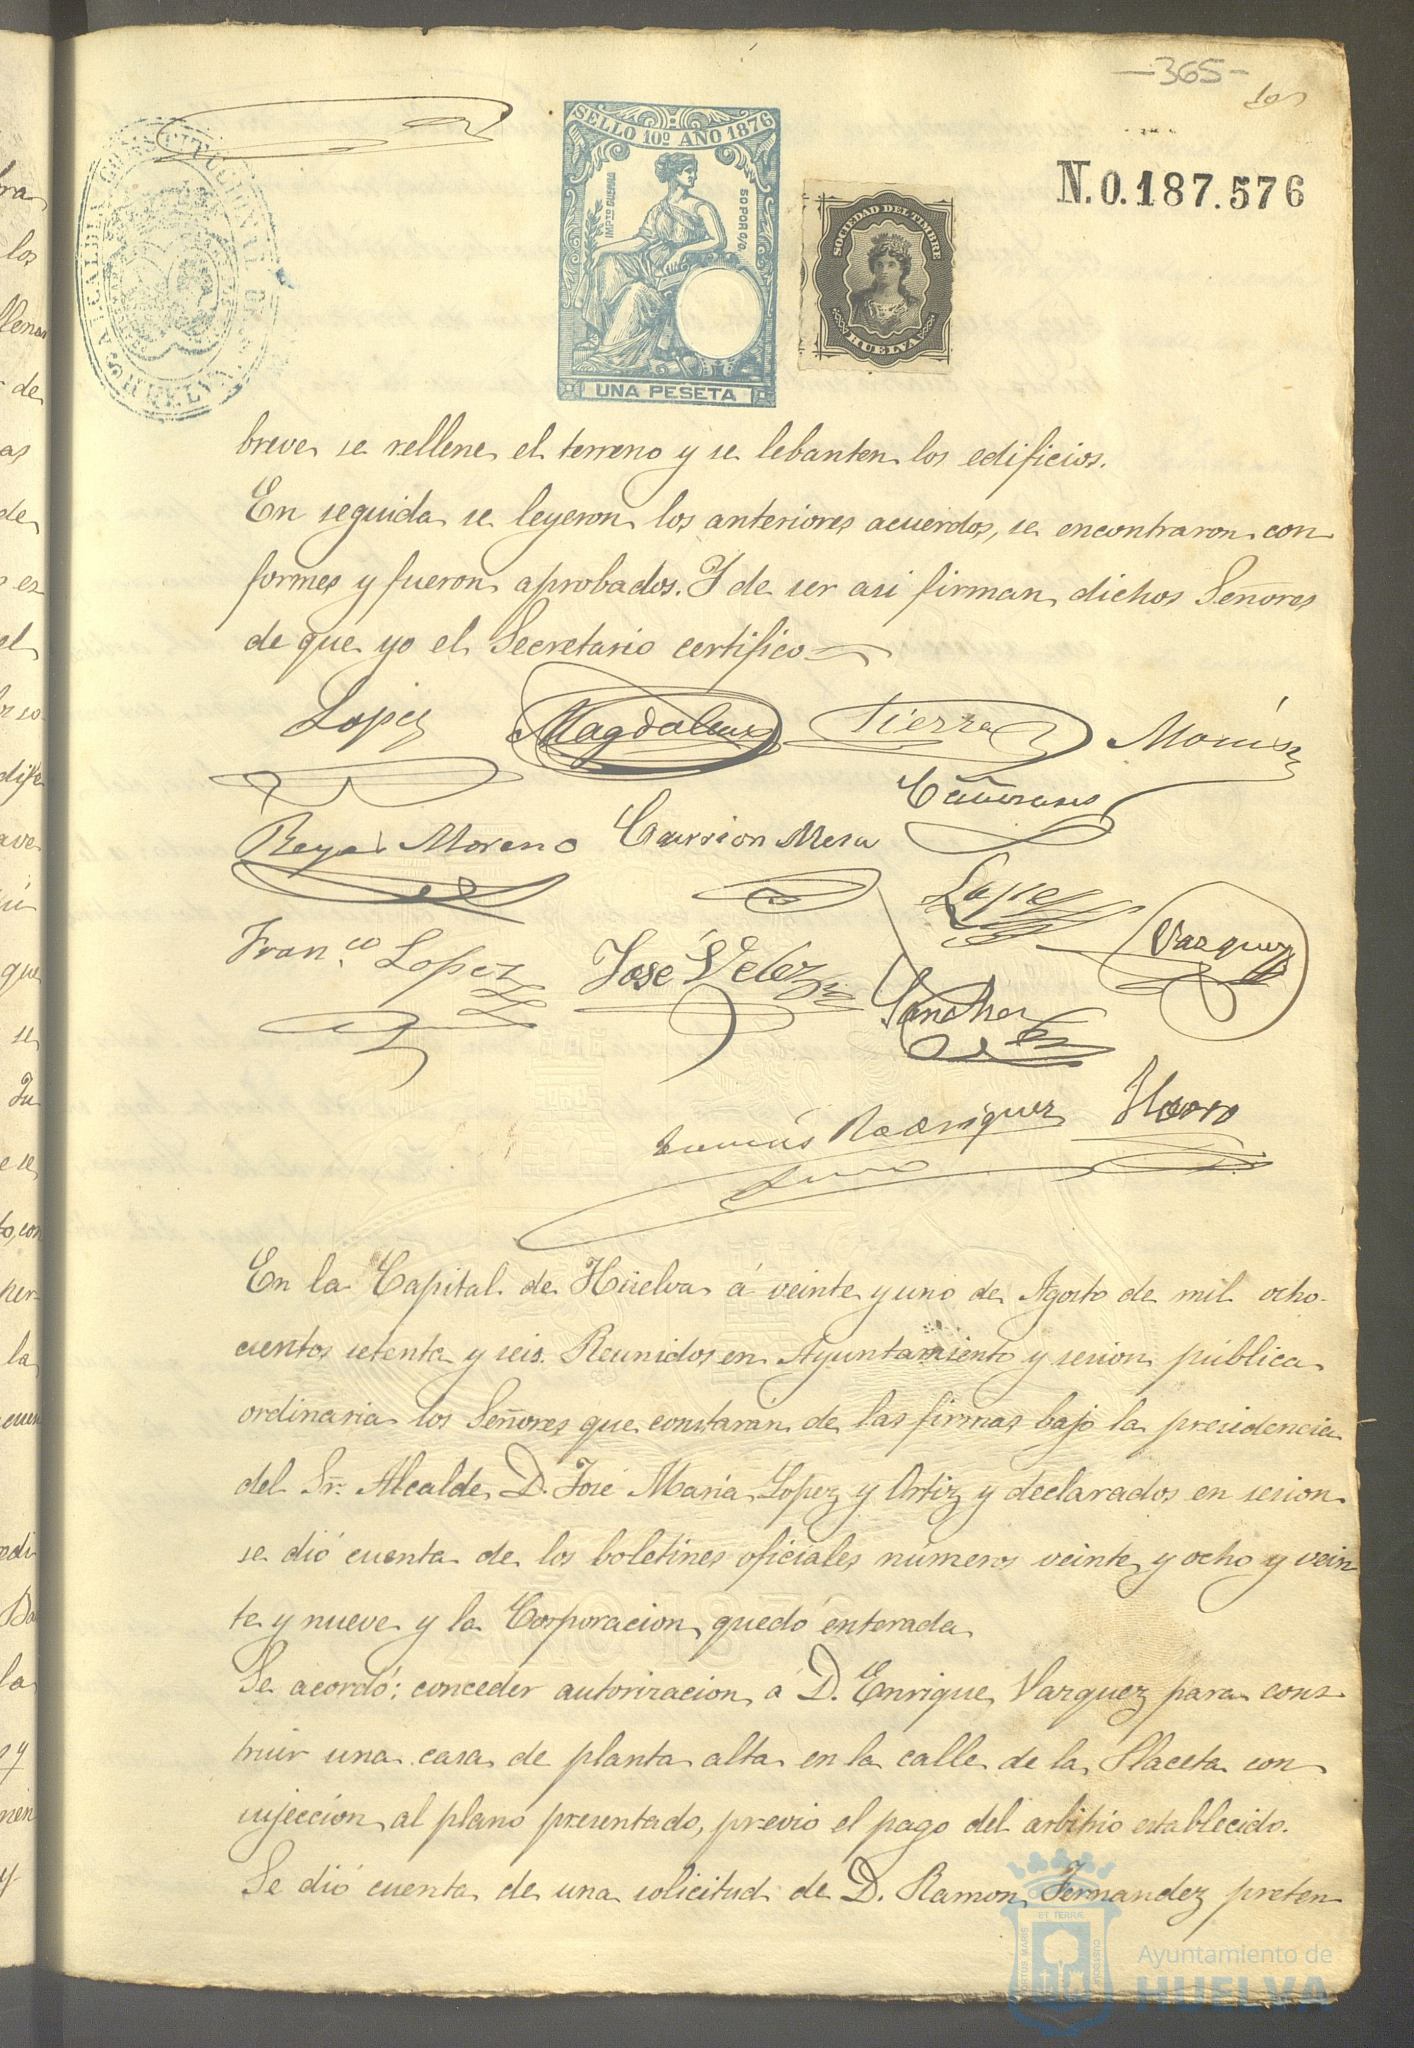 -365-
SELLO 10º AÑO 1876
IMPTO GUERRA
50 POR O/O.
UNA PESETA
SOCIEDAD DEL TIMBRE
HUELVA
N.0.187.576
ALCALDIA CONSTITUCIONAL DE HUELVA
breve se rellene el terreno y se lebanten los edificios.
En seguida se leyeron los anteriores acuerdos, se encontraron con
formes y fueron aprobados. Y de ser asi firman dichos Señores
de que yo el Secretario certifico
Lopez Magdalena Tierra
Reyes Moreno Carrion Mesa
Lopez Vazquez
Fran.co Lopez José Velez Sanchez
Rodriguez
En la Capital de Huelva á veinte y uno de Agosto de mil ocho-
cientos setenta y seis. Reunidos en Ayuntamiento y sesion pública
ordinaria los Señores que constarán de las firmas bajo la presidencia
del Sr. Alcalde D. José María Lopez y Ortiz y declarados en sesion
se dió cuenta de los boletines oficiales números veinte y ocho y vein
te y nueve y la Corporacion quedó enterada
Se acordó: conceder autorizacion á D. Enrique Vazquez para cons
truir una casa de planta alta en la calle de la Placeta con
sujección al plano presentado, previo el pago del arbitrio establecido.
Se dió cuenta de una solicitud de D. Ramon Fernandez preten
Ayuntamiento de
HUELVA